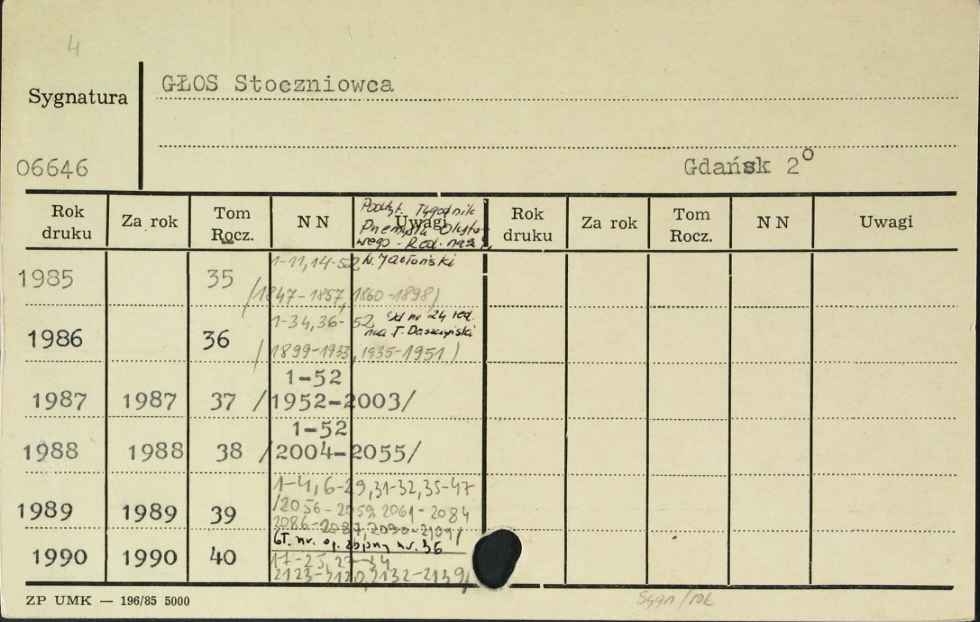 4
Sygnatura GŁOS Stoczniowca
06646 Gdańsk 2°
Rok druku Za rok Tom Rocz. NN Uwagi Rok druku Za rok Tom Rocz. NN Uwagi
Podtyt. Tygodnik
Przemysłu
wego - Red. nacz.
1985 35 1-11, 14-52
/1847-1857, 1860-1898/
1986 36 1-34, 36-52 Od nr 24 red.
/1899-1933, 1935-1951/
1-52
1987 1987 37 /1952-2003/
1-52
1988 1988 38 /2004-2055/
1-4, 6-29, 31-32, 35-47
1989 1989 39 /2056-2059, 2061-2084
2086-2087, 2090-
nr. 36
1990 1990 40 17-25, 27-34
2132-2139/
ZP UMK — 196/85 5000
Sygn/rok